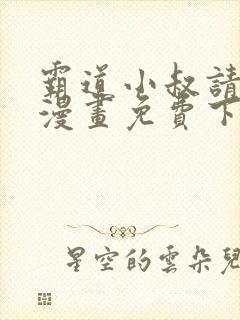 霸道小叔請
漫畫免費下
星空的雲朵兒